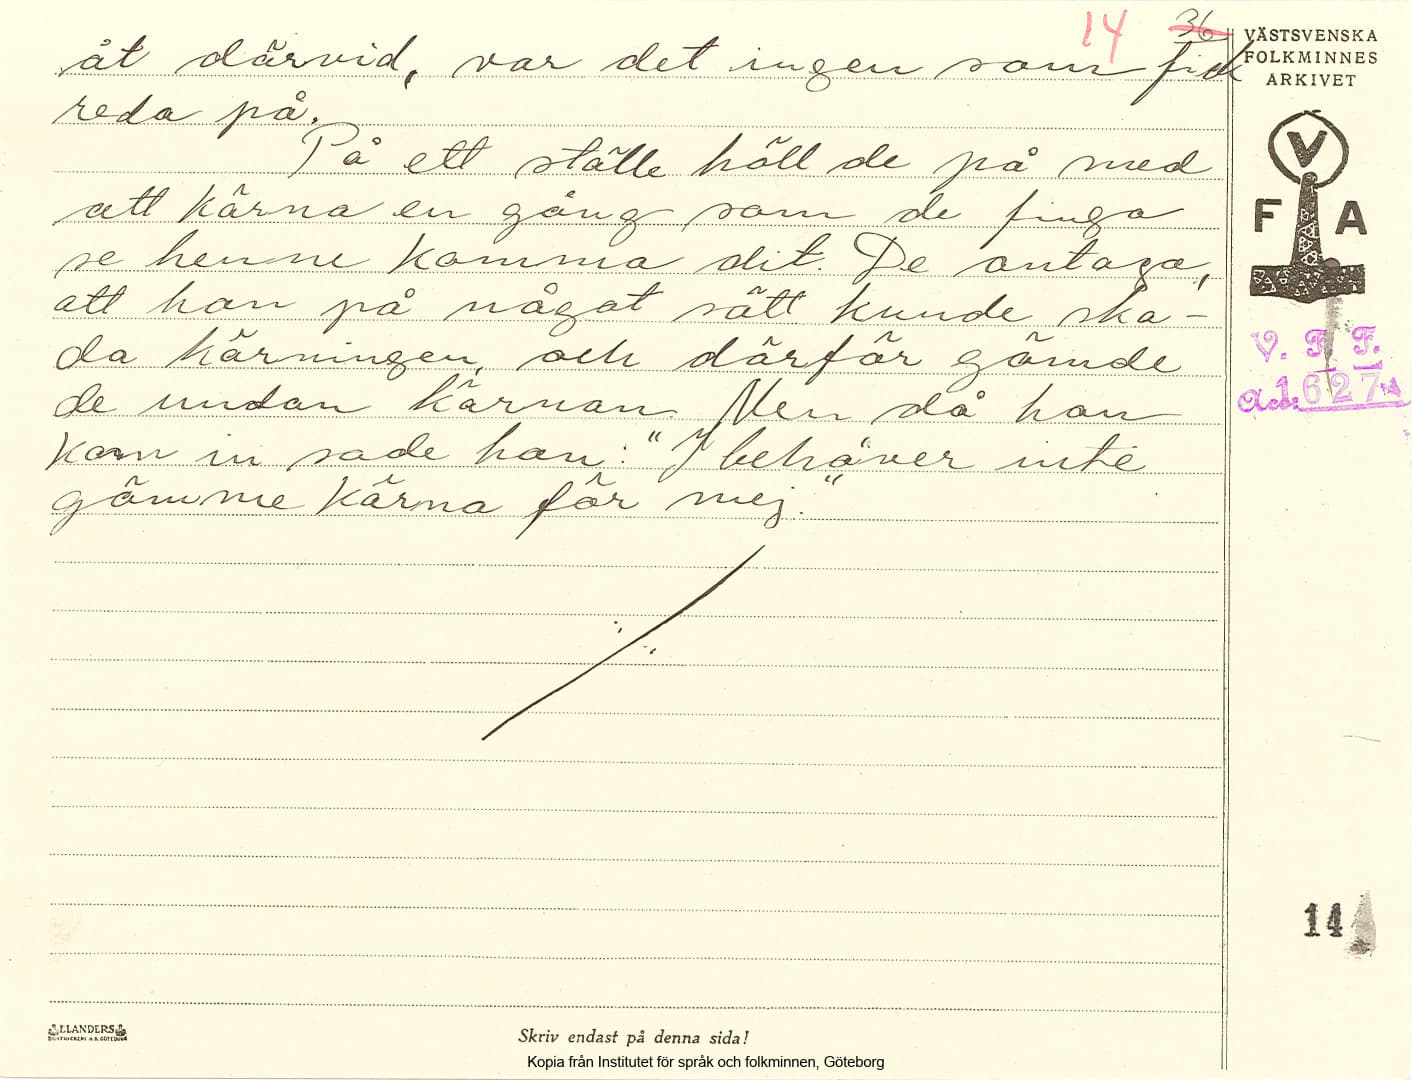 14 36
åt därvid, var det ingen som fick
reda på.
På ett ställe höll de på med
att kärna en gång som de finga
se henne komma dit. De antaga,
att han på något sätt kunde ska-
da kärningen, och därför gömde
de undan kärnan. Men då han
kom in sade han: "I behöver inte
gömme kärna för mej."
VÄSTSVENSKA
FOLKMINNES
ARKIVET
V
F A
V. F. F.
Acc. 1627
14
ELANDERS
BOKTRYCKERI A.B. GÖTEBORG
Skriv endast på denna sida!
Kopia från Institutet för språk och folkminnen, Göteborg